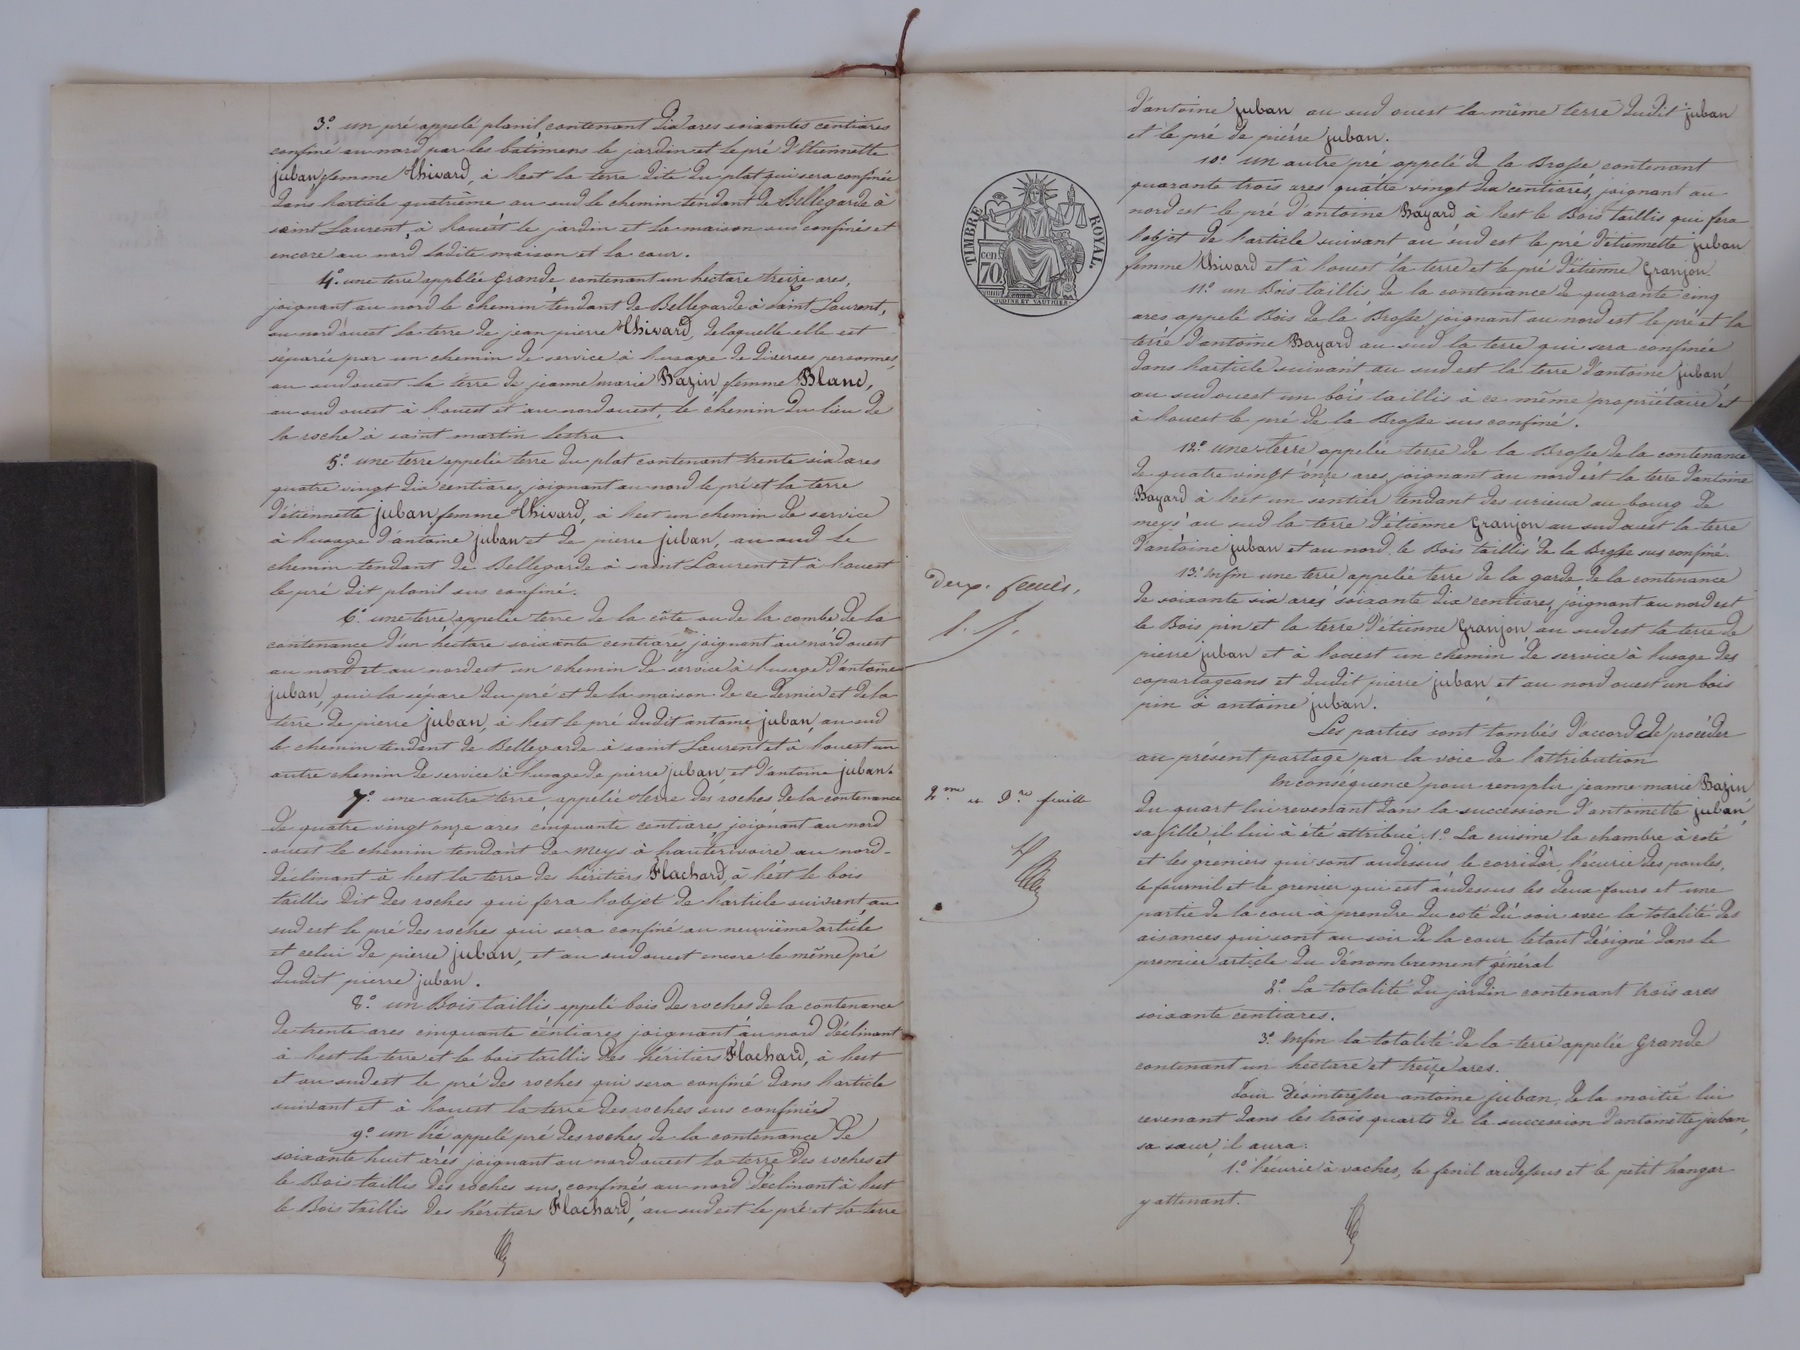 3º. un pré appelé planil, contenant dix ares soixantes centiares
confiné au nord par les batimens le jardin et le pré d'Etiennette
juban femme Thivard, à l'est la terre dite du plat qui sera confinée
dans l'article quatrième au sud le chemin tendant de Bellegarde à
saint Laurent, à l'ouest le jardin et la maison sus confinés et
encore au nord ladite maison et la cour.
4º. une terre appelée Grande, contenant un hectare treize ares,
joignant au nord le chemin tendant de Bellegarde à Saint Laurent,
au nord ouest la terre de jean pierre Thivard, de laquelle elle est
séparée par un chemin de service à l'usage de diverses personnes,
au sud ouest la terre de jeanne marie Bazin femme Blanc,
au sud ouest à l'ouest et au nord ouest, le chemin du lieu de
la roche à saint martin lestra.
5º. une terre appelée terre du plat contenant trente six ares
quatre vingt dix centiares, joignant au nord le pré et la terre
d'étiennette juban femme Thivard, à l'est un chemin de service
à l'usage d'antoine juban et de pierre juban, au sud le
chemin tendant de Bellegarde à saint Laurent et à l'ouest
le pré dit planil sus confiné.
6º. une terre appelée terre de la côte ou de la combe de la
contenance d'un hectare soixante centiares, joignant au nord ouest
au nord et au nord est un chemin de service à l'usage d'antoine
juban, qui la sépare du pré et de la maison de ce dernier et de la
terre de pierre juban, à l'est le pré dudit antoine juban, au sud
le chemin tendant de Bellegarde à saint Laurent et à l'ouest un
autre chemin de service à l'usage de pierre juban, et d'antoine juban.
7º. une autre terre, appelée terre des roches de la contenance
de quatre vingt onze ares cinquante centiares, joignant au nord
ouest le chemin tendant de meys à hauterivoire au nord-
déclinant à l'est la terre des héritiers Flachard, à l'est le bois
taillis dit des roches qui fera l'objet de l'article suivant au
sud est le pré des roches qui sera confiné au neuvième article
et celui de pierre juban, et au sud ouest encore le même pré
dudit pierre juban.
8º. un Bois taillis appelé bois des roches de la contenance
de trente ares cinquante centiares joignant au nord déclinant
à l'est la terre et le bois taillis des héritiers Flachard, à l'est
et au sud est le pré des roches qui sera confiné dans l'article
suivant et à l'ouest la terre des roches sus confinée
9º. un Pré appelé pré des roches, de la contenance de
soixante huit ares joignant au nord ouest la terre des roches et
le Bois taillis des roches sus confinés au nord déclinant à l'est
le Bois taillis des héritiers Flachard, au sud est le pré et la terre
TIMBRE ROYAL.
cen
70
deux. feuille.
2me et Dre feuille
d'antoine juban au sud ouest la même terre dudit juban
et le pré de pierre juban.
10º. un autre pré appelé de la Brosse contenant
quarante trois ares quatre vingt dix centiares, joignant au
nord est le pré d'antoine Bayard, à l'est le Bois taillis qui fera
l'objet de l'article suivant au sud est le pré d'étiennette juban
femme Thivard et à l'ouest la terre et le pré d'Etienne Granjon.
11º. un Bois taillis de la contenance de quarante cinq
ares appelé Bois de la Brosse, joignant au nord est le pré et la
terre d'antoine Bayard au sud la terre qui sera confinée
dans l'article suivant au sud est la terre d'antoine juban,
au sud ouest un bois taillis à ce même propriétaire et
à l'ouest le pré de la Brosse sus confiné.
12º. une terre appelée terre de la Brosse de la contenance
de quatre vingt onze ares, joignant au nord est la terre d'antoine
Bayard à l'est un sentier tendant des urieux au bourg de
meys au sud la terre d'étienne Granjon au sud ouest la terre
d'antoine juban et au nord le Bois taillis de la Brosse sus confiné.
13º. enfin une terre appelée terre de la garde de la contenance
de soixante six ares soixante dix centiares, joignant au nord est
le Bois pin et la terre d'étienne Granjon, au sud est la terre de
pierre juban et à l'ouest un chemin de service à l'usage des
copartageans et dudit pierre juban, et au nord ouest un bois
pin à antoine juban.
Les parties sont tombés d'accord de procéder
au présent partage par la voie de l'attribution
En conséquence pour remplir jeanne marie Bazin
du quart lui revenant dans la succession d'antoinette juban,
sa fille, il lui à été attribué: 1º. La cuisine la chambre à coté
et les greniers qui sont audessus, le corridor, l'écurie des poules,
le fournil et le grenier qui est audessus les deux fours et une
partie de la cour à prendre du coté du soir avec la totalité des
aisances qui sont au soir de la cour letout désigné dans le
premier article du dénombrement général
2º. La totalité du jardin contenant trois ares
soixante centiares.
3º. enfin la totalité de la terre appelée Grande
contenant un hectare et treize ares.
Pour désintéresser antoine juban, de la moitié lui
revenant dans les trois quarts de la succession d'antoinette juban,
sa sœur, il aura:
1º. l'écurie à vaches, le fenil audessus et le petit hangar
y attenant.